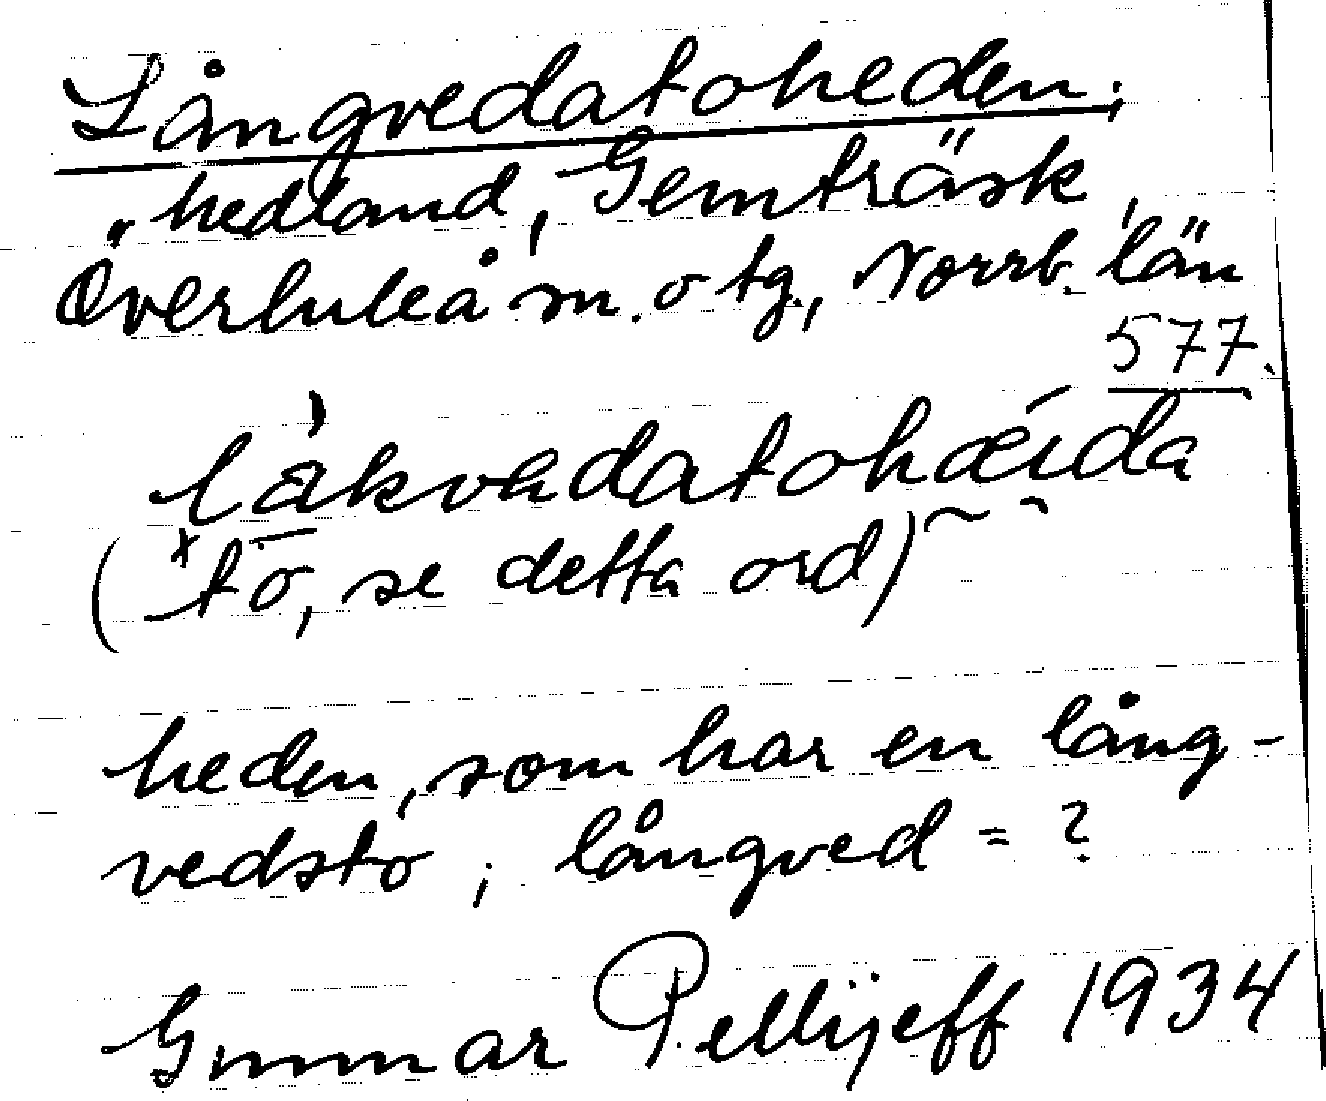 Långvedatoheden;
"hedland, Gemträsk,
Överluleå sn. o tg., Norrb. län
577.
lákvedatohæída
(*to, se detta ord)
heden, som har en lång-
vedsto; långved = ?
Gunnar Pellijeff 1934